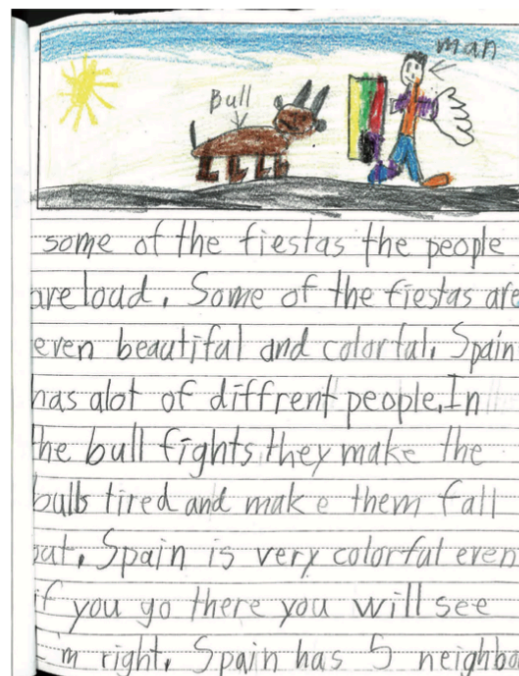 man
Bull
some of the fiestas the people
are load. Some of the fiestas are
even beautiful and colorful. Spain
has alot of diffrent people. In
the bull fights they make the
bulls tired and make them fall
out. Spain is very colorful even
if you go there you will see
I'm right. Spain has 5 neighbo